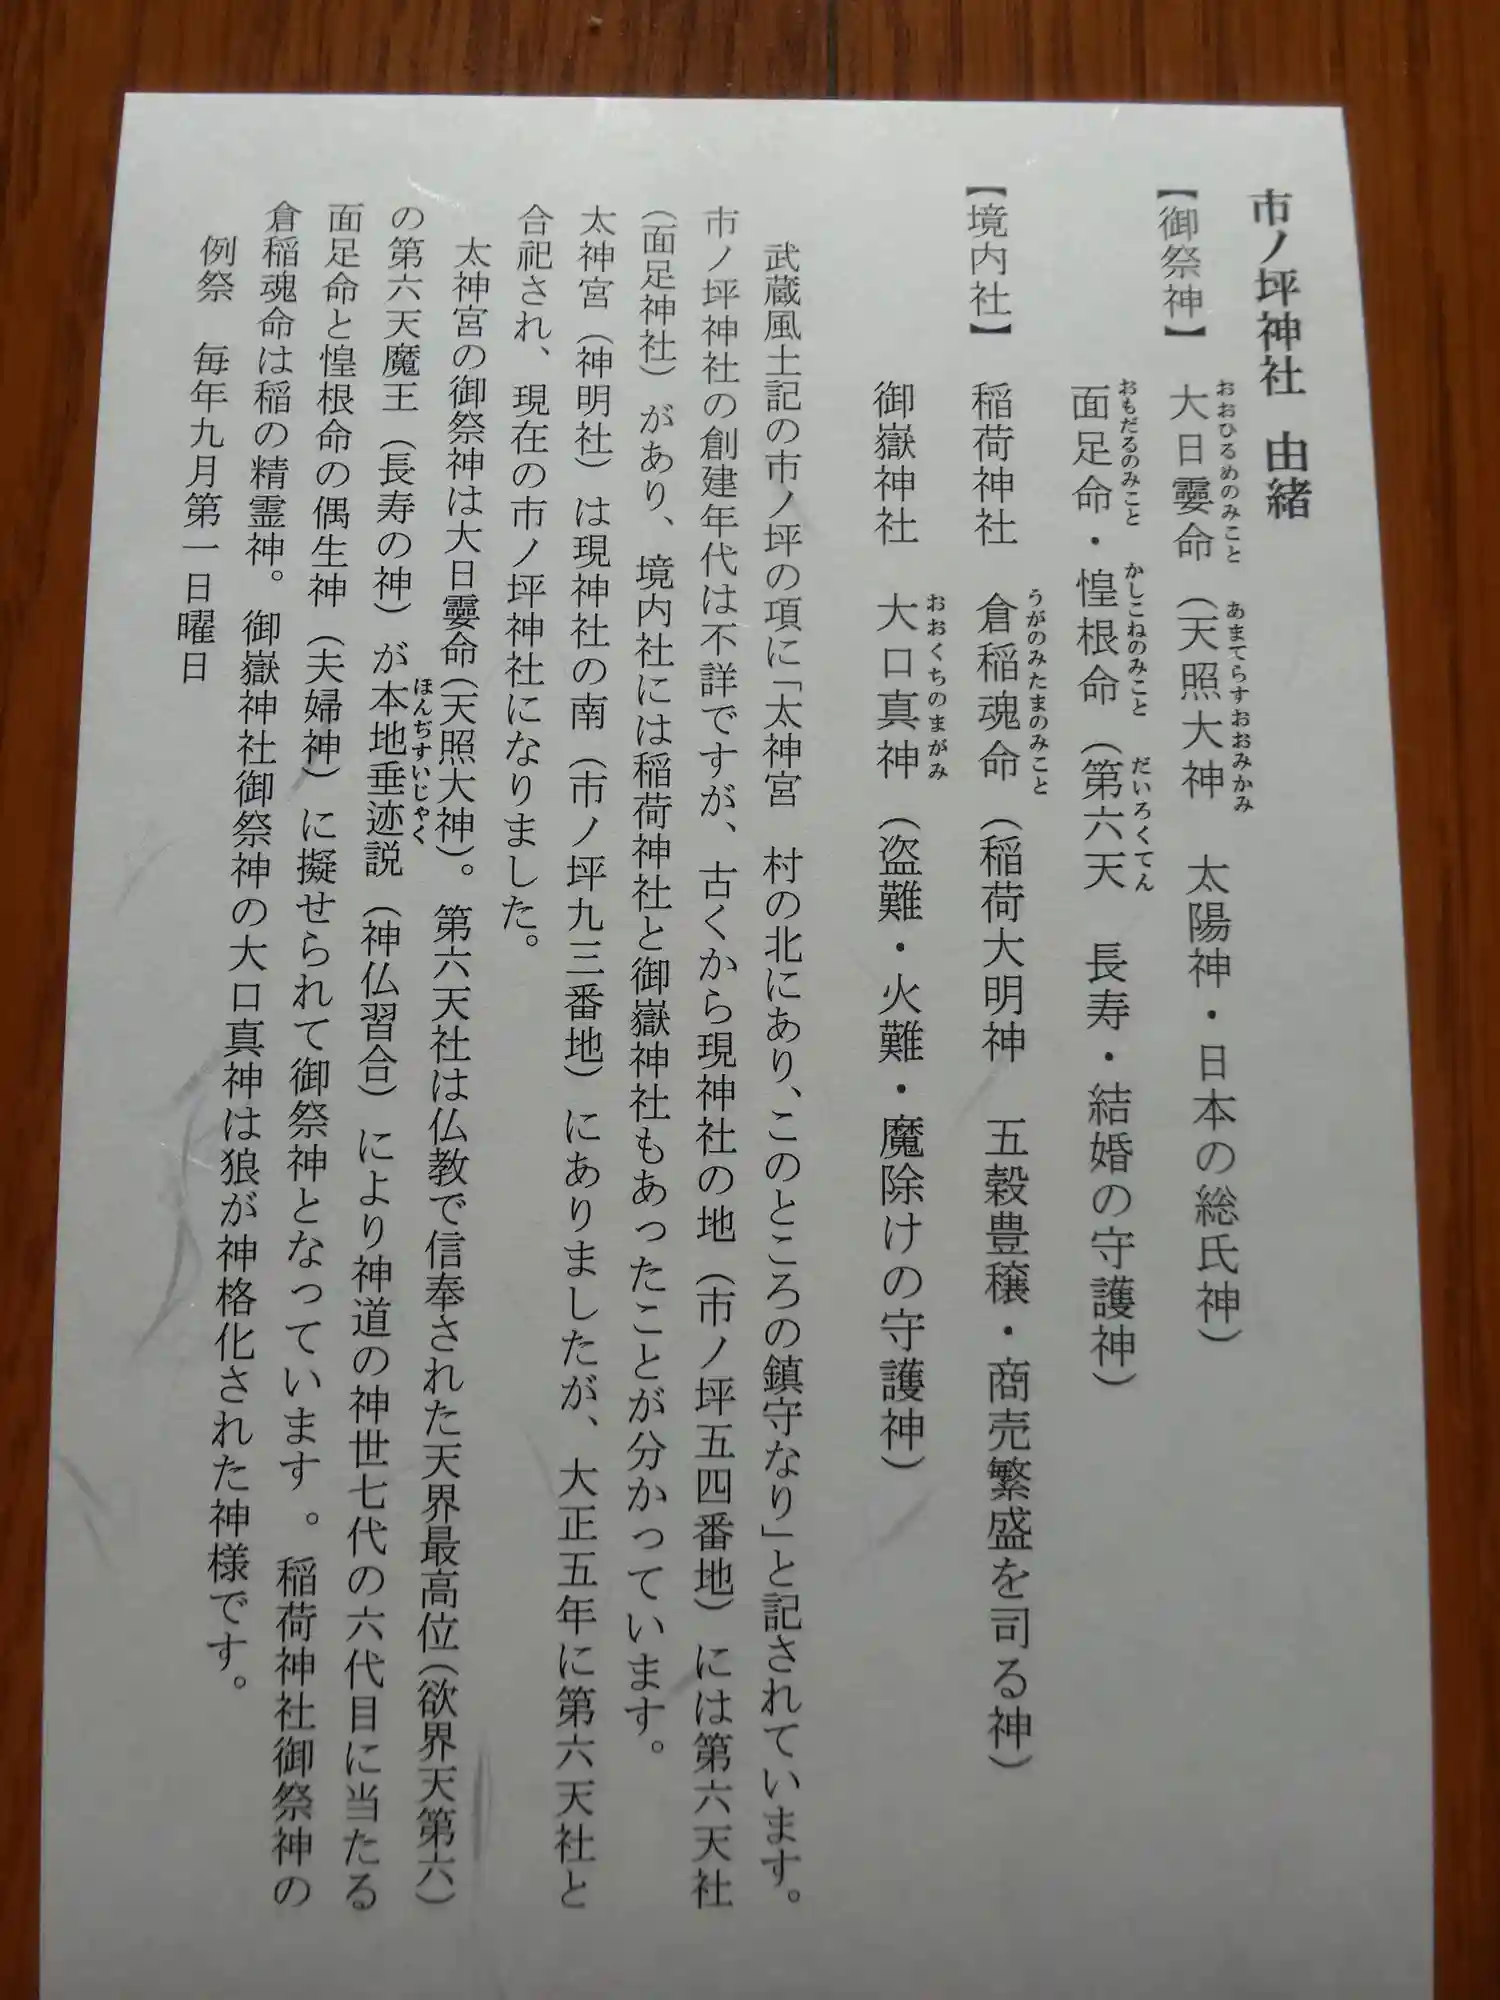 市ノ坪神社 由緒
【御祭神】 大日孁命(天照大神 太陽神・日本の総氏神)
おおひるめのみこと あまてらすおおみかみ
面足命・惶根命(第六天 長寿・結婚の守護神)
おもだるのみこと かしこねのみこと だいろくてん
【境内社】 稲荷神社 倉稲魂命(稲荷大明神 五穀豊穣・商売繁盛を司る神)
うがのみたまのみこと
御嶽神社 大口真神(盗難・火難・魔除けの守護神)
おおくちのまがみ
武蔵風土記の市ノ坪の項に「太神宮 村の北にあり、このところの鎮守なり」と記されています。
市ノ坪神社の創建年代は不詳ですが、古くから現神社の地(市ノ坪五四番地)には第六天社
(面足神社)があり、境内社には稲荷神社と御嶽神社もあったことが分かっています。
太神宮(神明社)は現神社の南(市ノ坪九三番地)にありましたが、大正五年に第六天社と
合祀され、現在の市ノ坪神社になりました。
太神宮の御祭神は大日孁命(天照大神)。第六天社は仏教で信奉された天界最高位(欲界天第六)
の第六天魔王(長寿の神)が本地垂迹説(神仏習合)により神道の神世七代の六代目に当たる
ほんぢすいじゃく
面足命と惶根命の偶生神(夫婦神)に擬せられて御祭神となっています。稲荷神社御祭神の
倉稲魂命は稲の精霊神。御嶽神社御祭神の大口真神は狼が神格化された神様です。
例祭 毎年九月第一日曜日